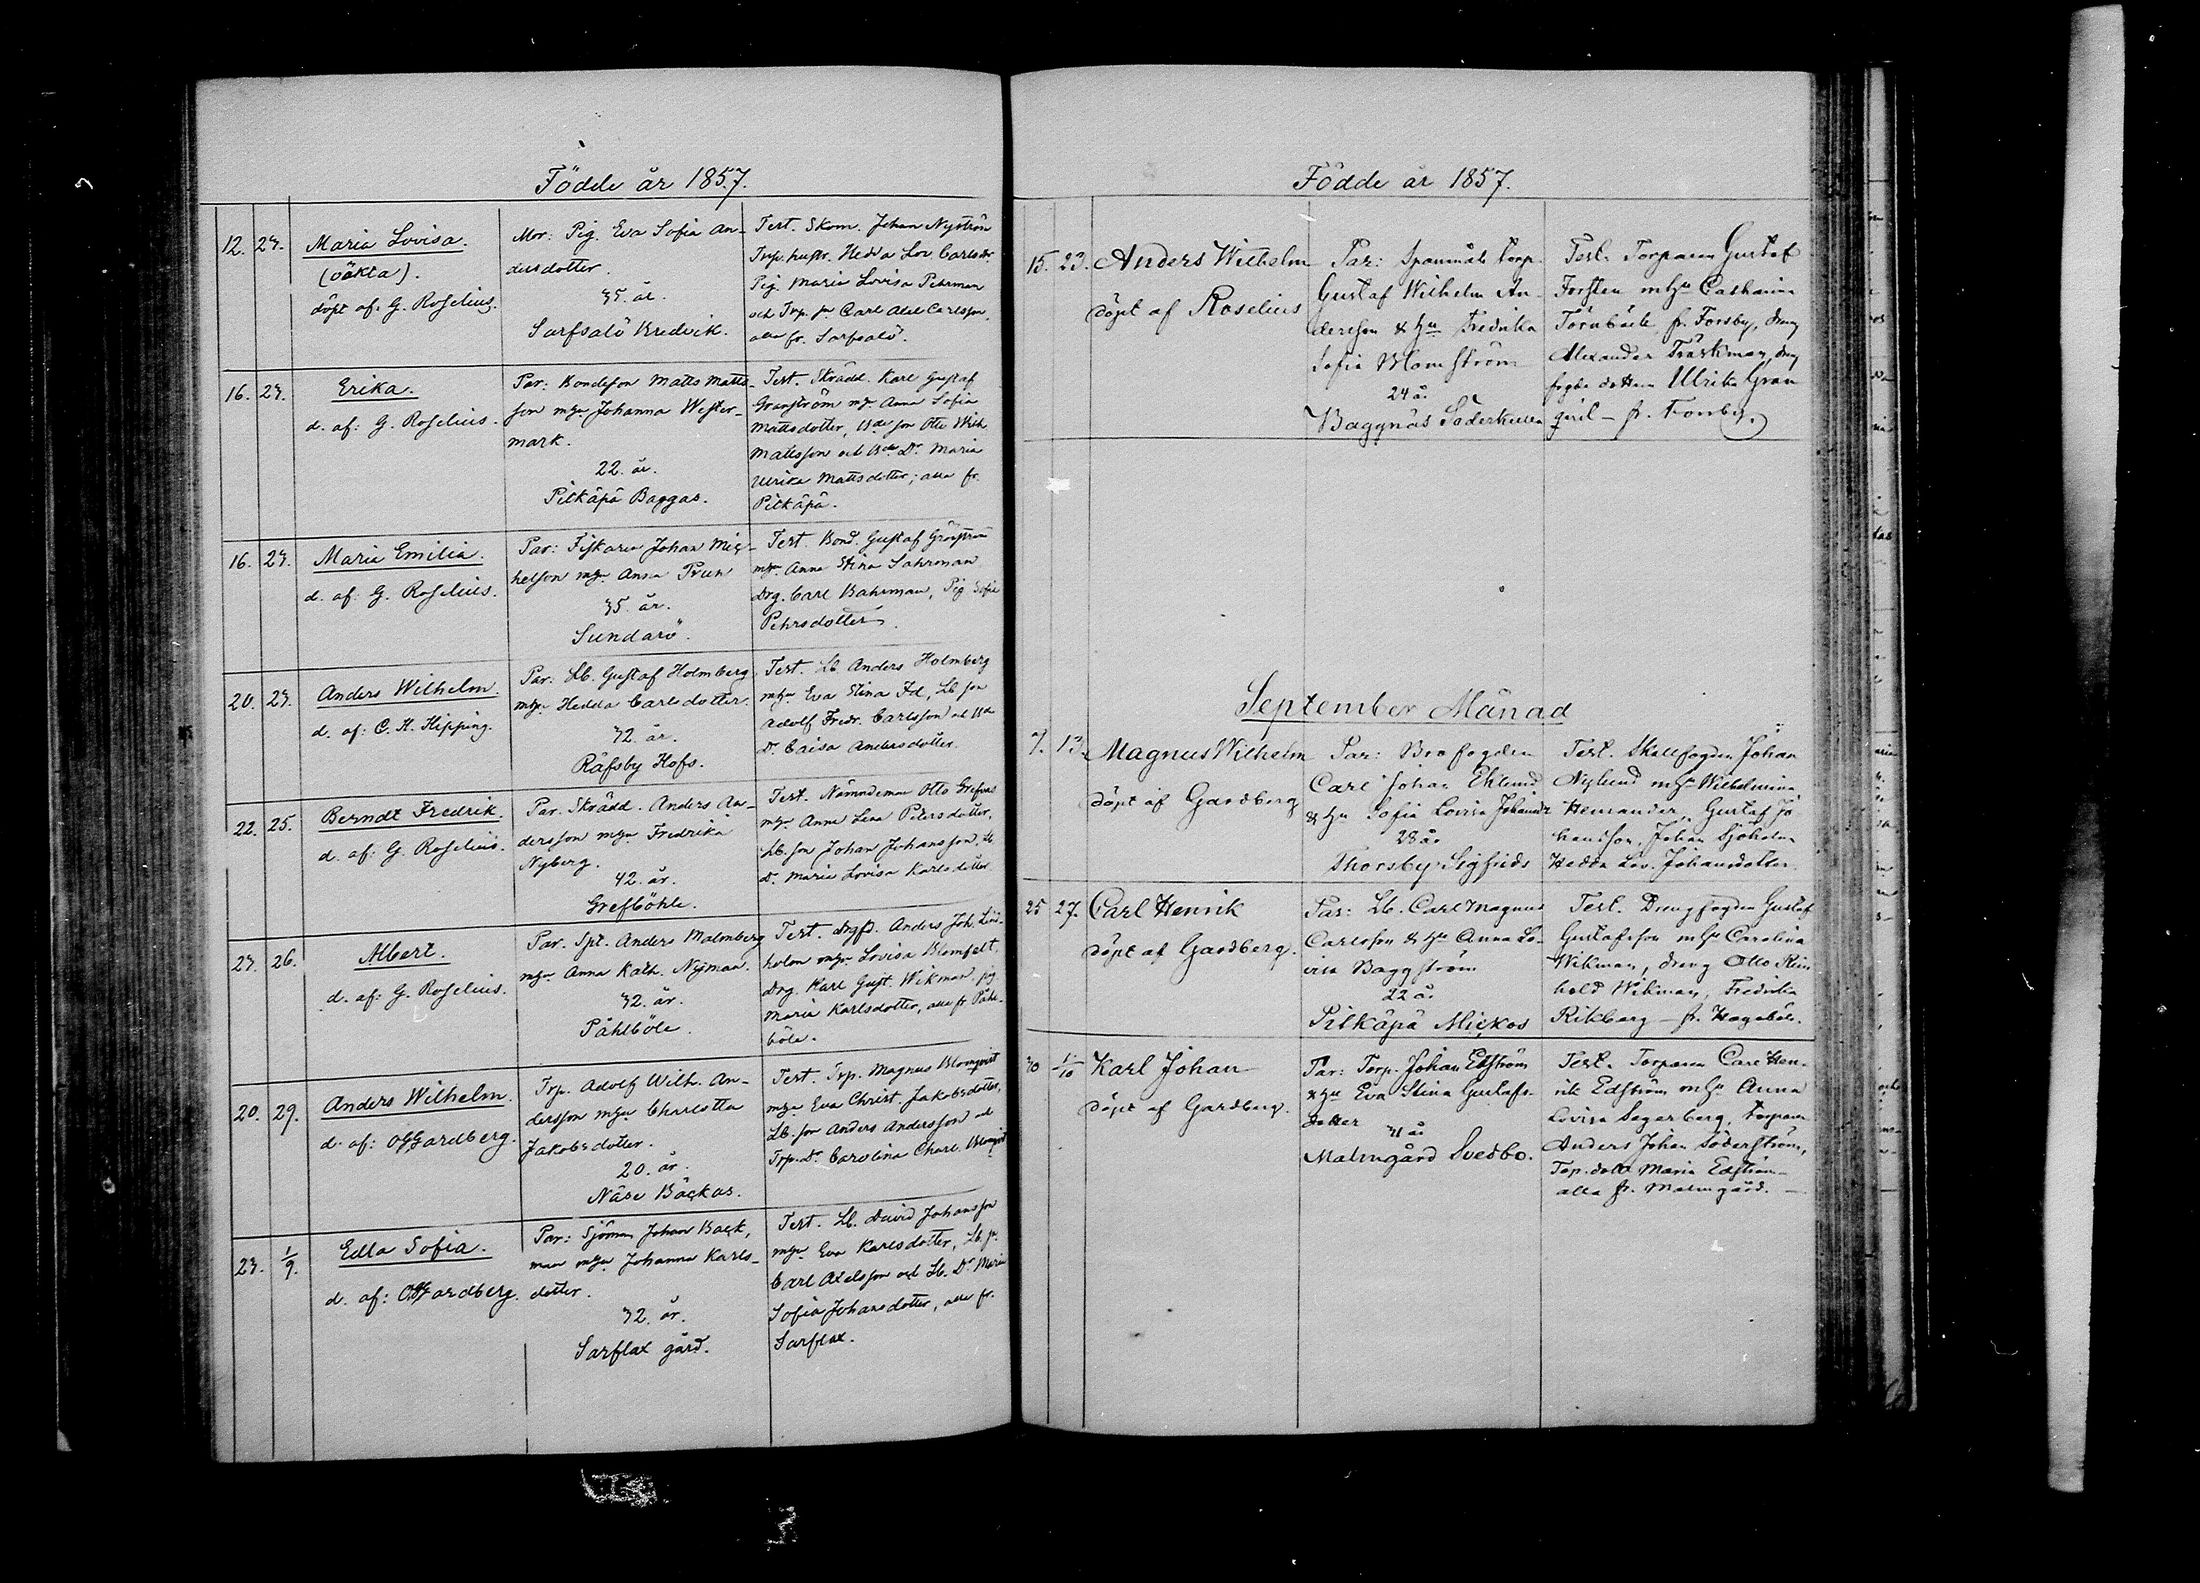 Födde år 1857.
12. 23. Maria Lovisa.
(oäkta).
döpt af: G. Roselius.
Mor: Pig. Eva Sofia An-
dersdotter.
35. år.
Sarfsalö Bredvik.
Test. Skom. Johan Nyström
Trp. hustr. Hedda Lov. Carlsdr
Pig. Maria Lovisa Pehrman
och Trp. sn Carl Axel Carlsson,
alla fr. Sarfsalö.
16. 23. Erika.
d. af: G. Roselius.
Par: Bondeson Matts Matts-
son mhu Johanna Wester-
mark.
22. år.
Pitkäpä Baggas.
Test. Skrädd. Karl Gustaf
Granström mhu Anna Sofia
Mattsdotter, Bde son Otto Wilh.
Mattsson och Bde Dr Maria
Ulrika Mattsdotter; alla fr.
Pitkäpä.
16. 23. Maria Emilia.
d. af: G. Roselius.
Par: Fiskaren Johan Mic-
helson mhu Anna Prun
35. år.
Sundarö.
Test. Bond. Gustaf Grönström
mhu Anna Stina Sahrman
Drg. Carl Bahrman, Pig Sofia
Pehrsdotter.
20. 23. Anders Wilhelm.
d. af: C. H. Hipping.
Par: Lb. Gustaf Holmberg
mhu Hedda Carlsdotter.
32. år.
Räfsby Hofs.
Test. Lb Anders Holmberg
mhu Eva Stina Jd, Lb son
Adolf Fredr. Carlsson och Bde
Dr Caisa Andersdotter.
22. 25. Berndt Fredrik.
d. af: G. Roselius.
Par. Skrädd. Anders An-
dersson mhu Fredrika
Nyberg.
42. år.
Grefböhle.
Test. Nämndeman Otto Grefvas
mhu Anna Lena Petersdotter,
Lb. son Johan Johansson, Lb
Dr Maria Lovisa Karlsdotter
23. 26. Albert.
d. af: G. Roselius.
Par. Spt. Anders Malmberg
mhu Anna Kath. Nyman.
32. år.
Påhlböle.
Test. drgfd. Anders Joh. Lind-
holm mhu Lovisa Blomfelt,
Drg. Karl Gust. Wikman, pig
Maria Karlsdotter, alla fr Påhl-
böle.
20. 29. Anders Wilhelm.
d. af: Gardberg.
Trp. Adolf Wilh. An-
dersson mhu Charlotta
Jakobsdotter.
20. år.
Näse Bäckas.
Test. Trp. Magnus Blomqvist
mhu Eva Christ. Jakobsdotter,
Lb. son Anders Andersson och
Trp. Dr Carolina Charl. Blomqvist
23. 1/9. Edla Sofia.
d. af: Gardberg.
Par: Sjöman Johan Back,
man mhu Johanna Karls-
dotter.
32. år.
Sarflax gård.
Test. Lb. David Johansson
mhu Eva Karlsdotter, Lb. sn.
Carl Axelsson och Lb. Dr Maria
Sofia Johansdotter, alla fr.
Sarflax.
Födde år 1857.
15. 23. Anders Wilhelm
döpt af Roselius
Par: Spanmåls Torp.
Gustaf Wilhelm An-
dersson & hu Fredrika
Sofia Blomström
24 å.
Baggnäs Söderkulla
Test. Torparen Gustaf
Forsten mhu Catharina
Törnbäck fr. Forsby, dräng
Alexander Träskman, drng
fogde dottern Ulrika Gran
qvist - fr. Forsby.
September Månad
7. 13. Magnus Wilhelm
döpt af Gardberg
Par: Brofogden
Carl Johan Eklund
& hu Sofia Lovisa Johansdr
28 år
Thorsby Sigfrids
Test. Skallfogden Johan
Nylund mhu Wilhelmina
Gustaf Jo
hansson, Johan Sjöholm
Hedda Lov. Johansdotter.
25 27. Carl Henrik
döpt af Gardberg.
Par: Lb. Carl Magnus
Carlsson & hu Anna Lo-
visa Baggström
22 å.
Pitkäpä Mickos
Test. Drengfogden Gustaf
Gustafsson mhu Carolina
Wikman, dreng Otto Rein
hold Wikman, Fredrika
Rikberg - fr. Hagaböle.
30 1/10 Karl Johan
döpt af Gardberg.
Par: Torp. Johan Edström
& hu Eva Stina Gustafs-
dotter 31 år
Malmgård Svedbo.
Test. Torparen Carl Hen-
rik Edström mhu Anna
Lovisa Segerberg, torparen
Anders Johan Söderström,
Torp. dott Maria Edström -
alla fr. Malmgård. -